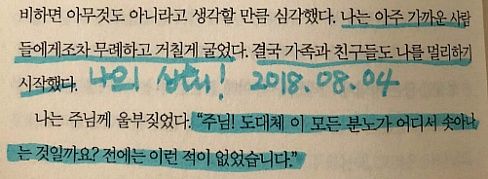 비하면 아무것도 아니라고 생각할 만큼 심각했다. 나는 아주 가까운 사람
들에게조차 무례하고 거칠게 굴었다. 결국 가족과 친구들도 나를 멀리하기
시작했다. 나의 상태! 2018.08.04
나는 주님께 울부짖었다. “주님! 도대체 이 모든 분노가 어디서 솟아나
는 것일까요? 전에는 이런 적이 없었습니다.”